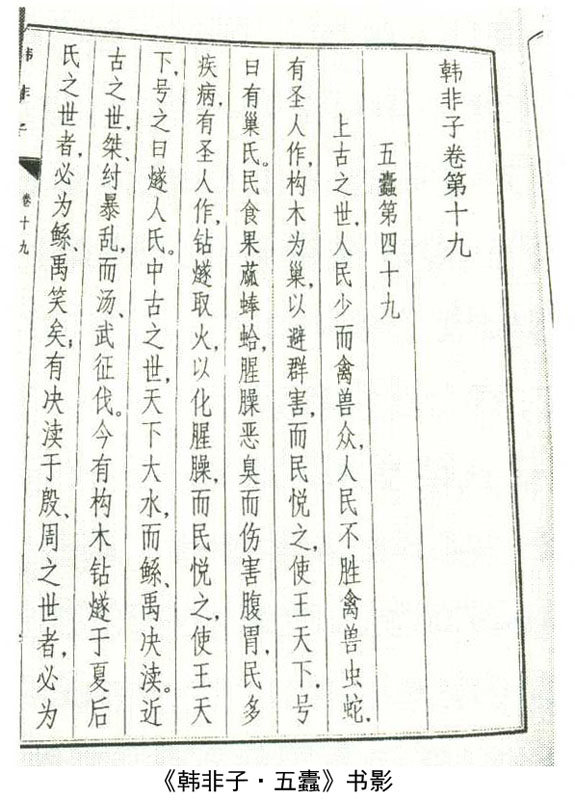 韩非子卷第十九
五蠹第四十九
上古之世，人民少而禽兽众，人民不胜禽兽虫蛇．
有圣人作，构木为巢，以避群害，而民悦之，使王天下，号
曰有巢氏。民食果蓏蜯蛤，腥臊恶臭而伤害腹胃，民多
疾病，有圣人作，钻燧取火，以化腥臊，而民悦之，使王天
下，号之曰燧人氏。中古之世，天下大水，而鲧、禹决渎。近
古之世，桀、纣暴乱，而汤、武征伐。今有构木钻燧于夏后
氏之世者，必为鲧、禹笑矣；有决渎于殷、周之世者，必为
韩非子
卷十九
《韩非子·五蠹》书影